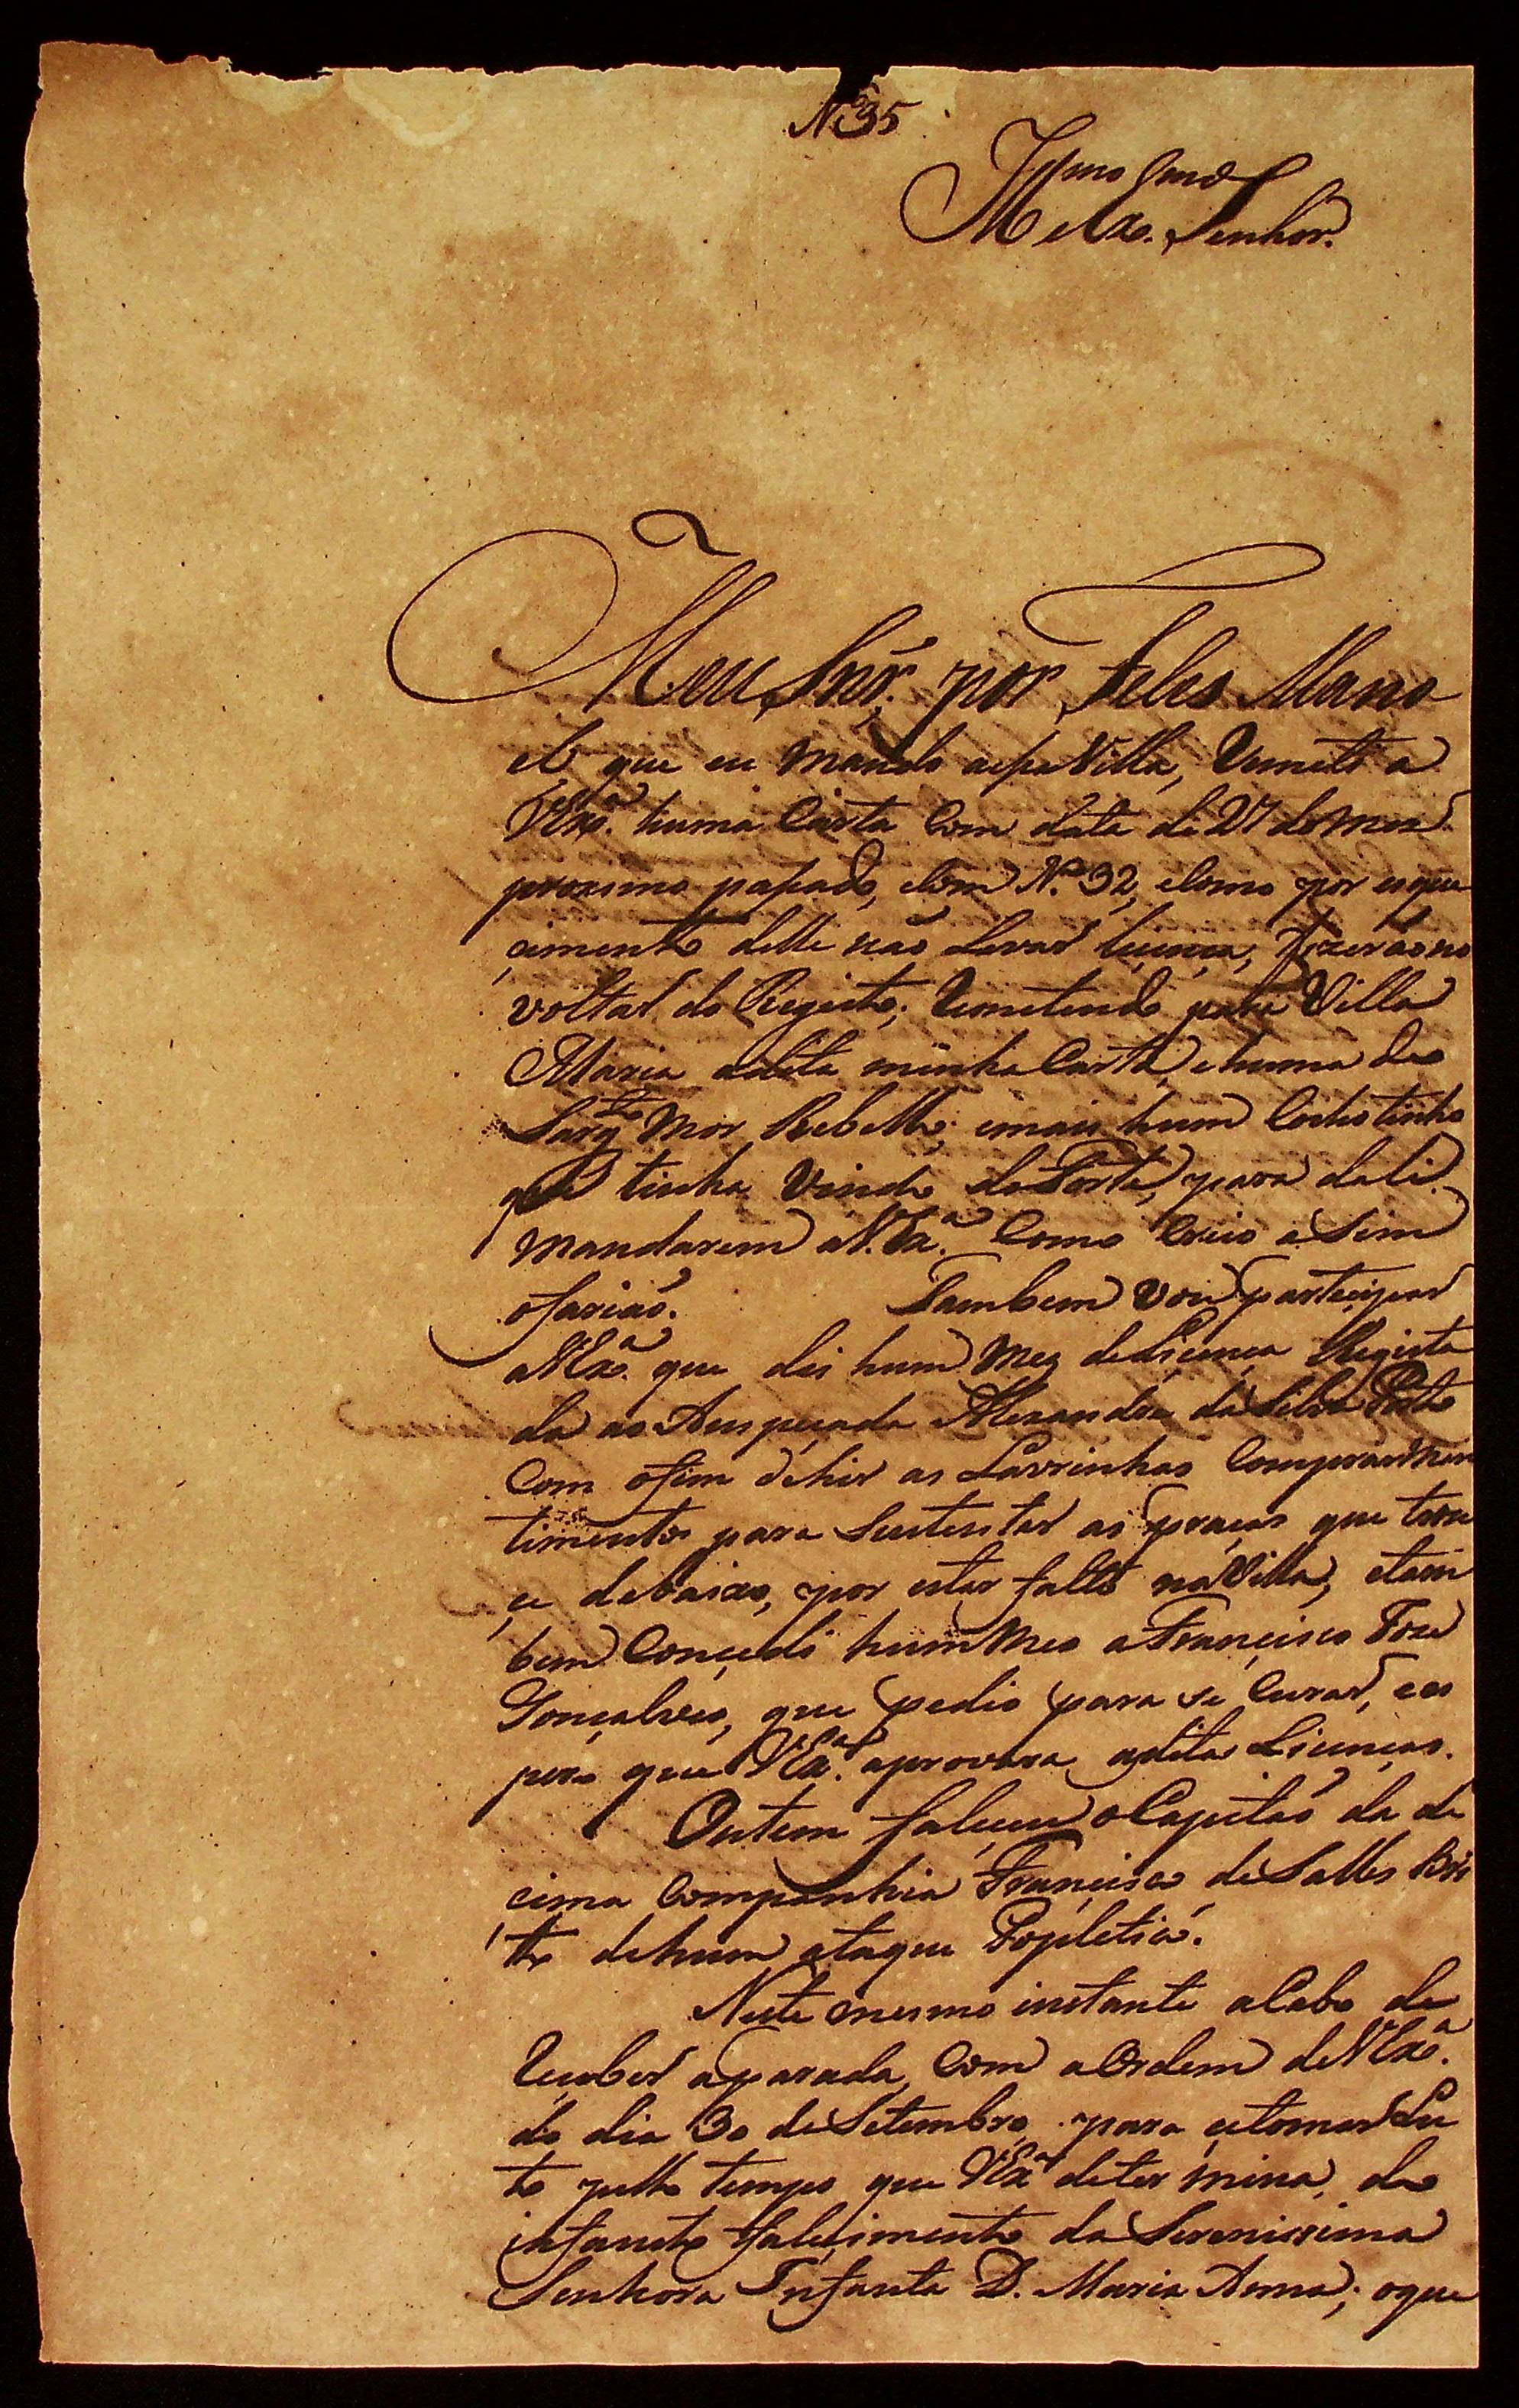 N.º 35
Illmo Snr
e Exo. Senhor.
Meu Snr. por Felis Mano
el que eu mando aessa Villa, Remeti a
VExa. huma Carta Com data de 27 do mes
proximo passado, ecom N.º 32, eComo por esque
cimento delle não Levar licença, fizerãono
voltar do Registo; Remetendo para Villa
Maria adita minha Carta, e huma do
Sargto Mor Rebello; emais hum Coxotinho
que tinha Vindo do Forte, para dali
mandarem aV.Exa. Como Creio a Sim
ofarião. Tambem Vou participar
aVExa. que dei hum Mez deLicença Regista
da ao Anspeçada Alexandre daSilva Porto
Com ofim dehir as Lavrinhas Comprar Man
timentos para Sustentar as praças que trou
ce debaixo, por estar falto naVilla, etam
bem Concedi hum Mes aFrancisco Joze
Gonçalves, que pedio para se Curar, ees
pero que VExa. aprovara asditas Licenças.
Ontem faleceu oCapitão da de
cima Companhia Francisco deSalles Bri
to dehum ataque Popletico.
Neste mesmo instante aCabo de
Receber aparada, Com aOrdem deVExa.
do dia 30 deSetembro para setomar Lu
to pello tempo que VExa. determina, do
infausto falecimento da Serenissima
Senhora Infanta D. Maria Anna; oque